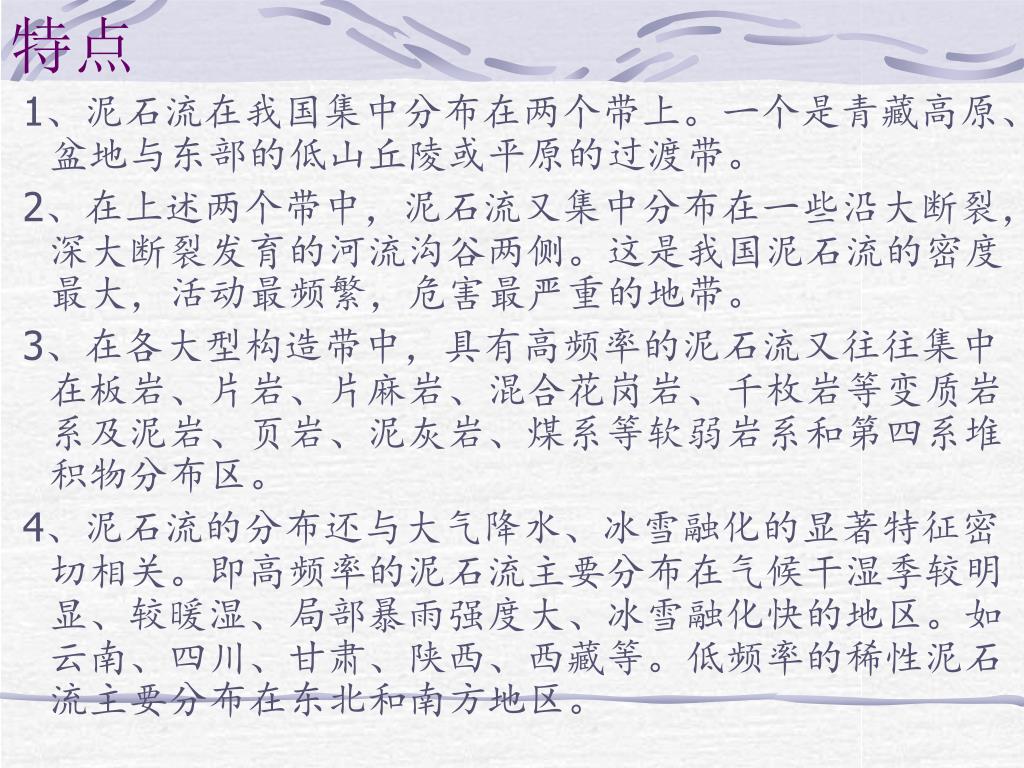 特点
1、泥石流在我国集中分布在两个带上。一个是青藏高原、
盆地与东部的低山丘陵或平原的过渡带。
2、在上述两个带中，泥石流又集中分布在一些沿大断裂，
深大断裂发育的河流沟谷两侧。这是我国泥石流的密度
最大，活动最频繁，危害最严重的地带。
3、在各大型构造带中，具有高频率的泥石流又往往集中
在板岩、片岩、片麻岩、混合花岗岩、千枚岩等变质岩
系及泥岩、页岩、泥灰岩、煤系等软弱岩系和第四系堆
积物分布区。
4、泥石流的分布还与大气降水、冰雪融化的显著特征密
切相关。即高频率的泥石流主要分布在气候干湿季较明
显、较暖湿、局部暴雨强度大、冰雪融化快的地区。如
云南、四川、甘肃、陕西、西藏等。低频率的稀性泥石
流主要分布在东北和南方地区。